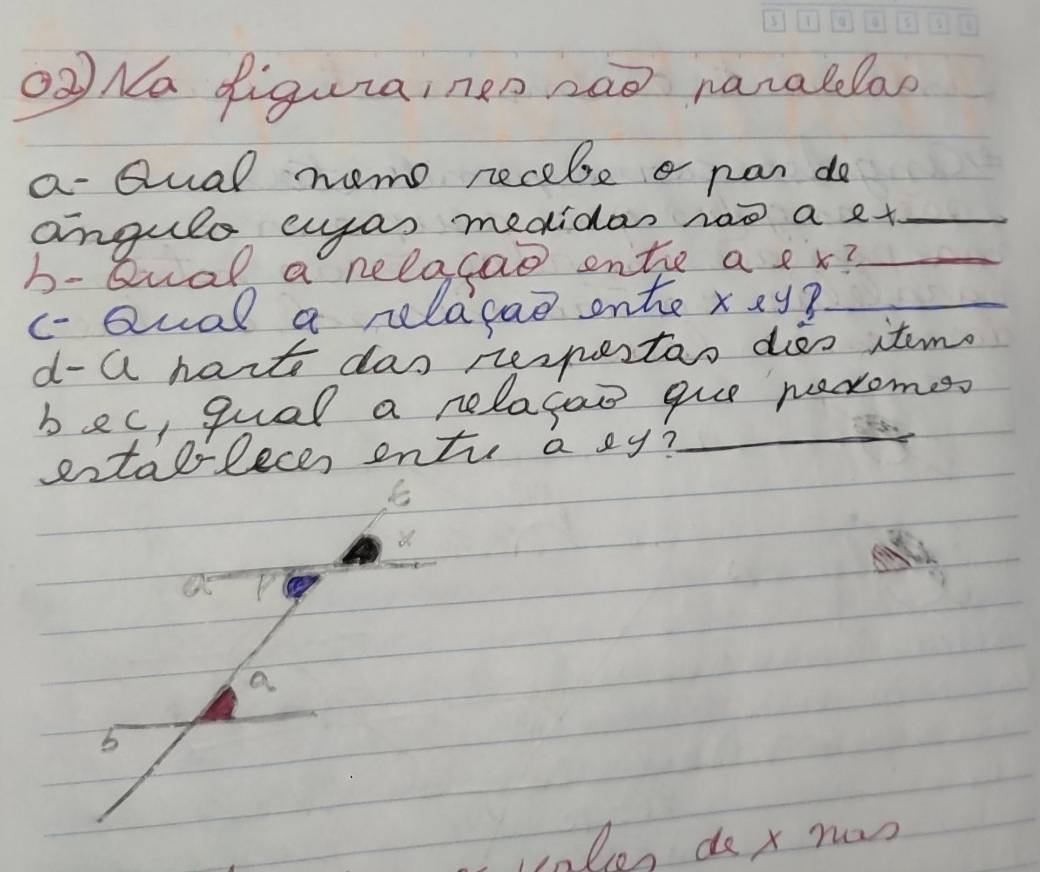 02) Na figura, r e s são paralelas
a- Qual nome recebe o par de
ângulo cujas medidas são a e x
b- Qual a relação entre a e x?
c- Qual a relação entre x e y?
d- A parte das respostas dies items
b e c, qual a relação que podemos
estableces entre a e y?
t
x
a
a
b
de x nas